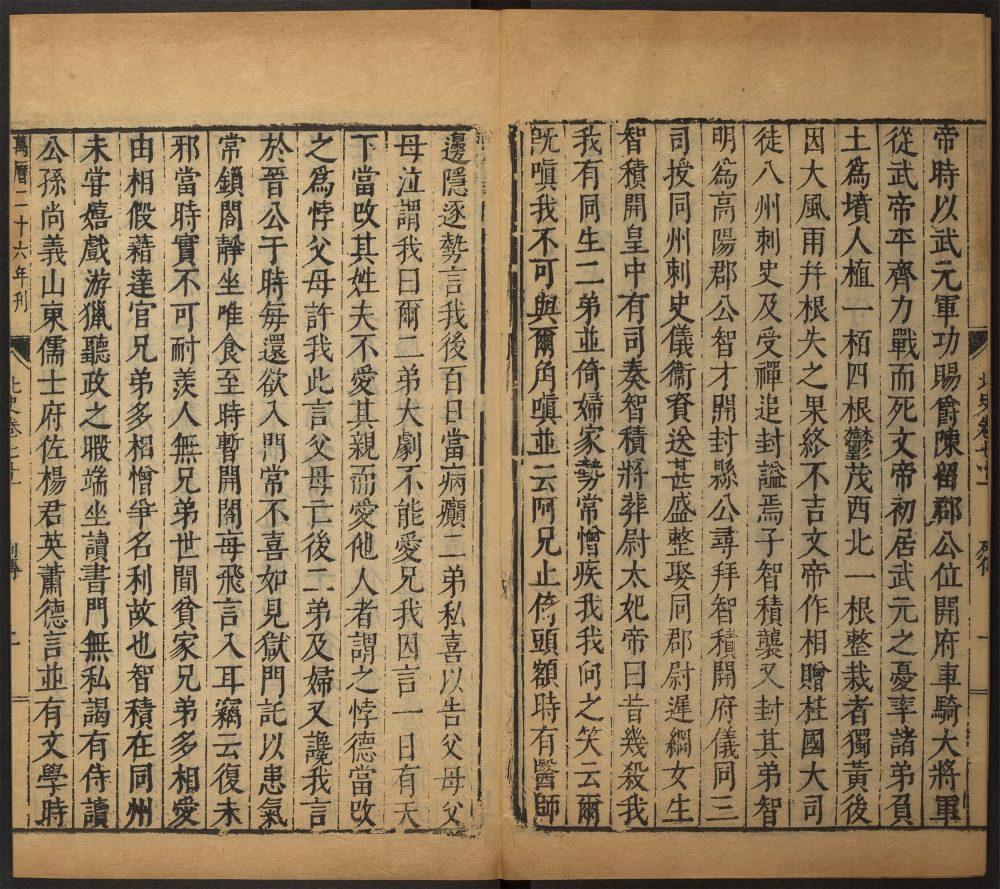 帝時以武元軍功賜爵陳留郡公位開府車騎大將軍
從武帝平齊力戰而死文帝初居武元之憂率諸弟負
土爲墳人植一栢四根鬱茂西北一根整栽者獨黃後
因大風雨幷根失之果終不吉文帝作相贈柱國大司
徒八州刺史及受禪追封謚焉子智積襲又封其弟智
明爲高陽郡公智才開封縣公尋拜智積開府儀同三
司授同州刺史儀衞資送甚盛整娶同郡尉遲綱女生
智積開皇中有司奏智積將葬尉太妃帝曰昔幾殺我
我有同生二弟並倚婦家勢常憎疾我我向之笑云爾
旣嗔我不可與爾角嗔並云阿兄止倚頭額時有醫師
邊隱逐勢言我後百日當病癲二弟私喜以告父母父
母泣謂我曰爾二弟大劇不能愛兄我因言一日有天
下當改其姓夫不愛其親而愛他人者謂之悖德當改
之爲悖父母許我此言父母亡後二弟及婦又讒我言
於晉公于時每還欲入門常不喜如見獄門託以患氣
常鎖閤靜坐唯食至時暫開閤每飛言入耳竊云復未
邪當時實不可耐羨人無兄弟世間貧家兄弟多相愛
由相假藉達官兄弟多相憎爭名利故也智積在同州
未甞嬉戲游獵聽政之暇端坐讀書門無私謁有侍讀
公孫尚義山東儒士府佐楊君英蕭德言並有文學時
萬曆二十六年刊
北史卷七十一
列傳
一